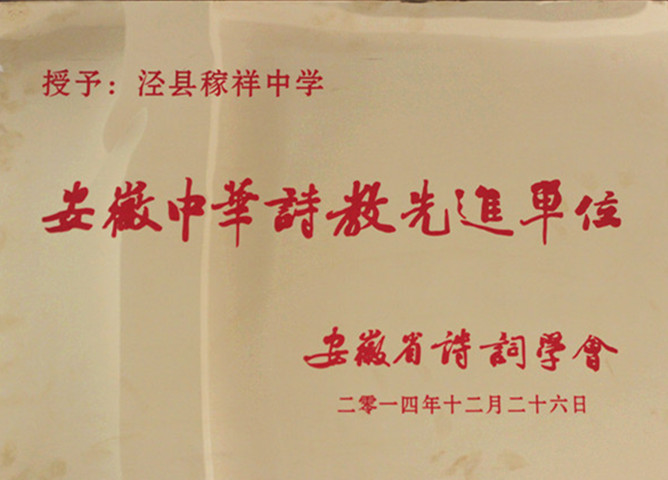 授予：泾县稼祥中学
安徽中華詩教先進單位
安徽省诗詞學會
二零一四年十二月二十六日